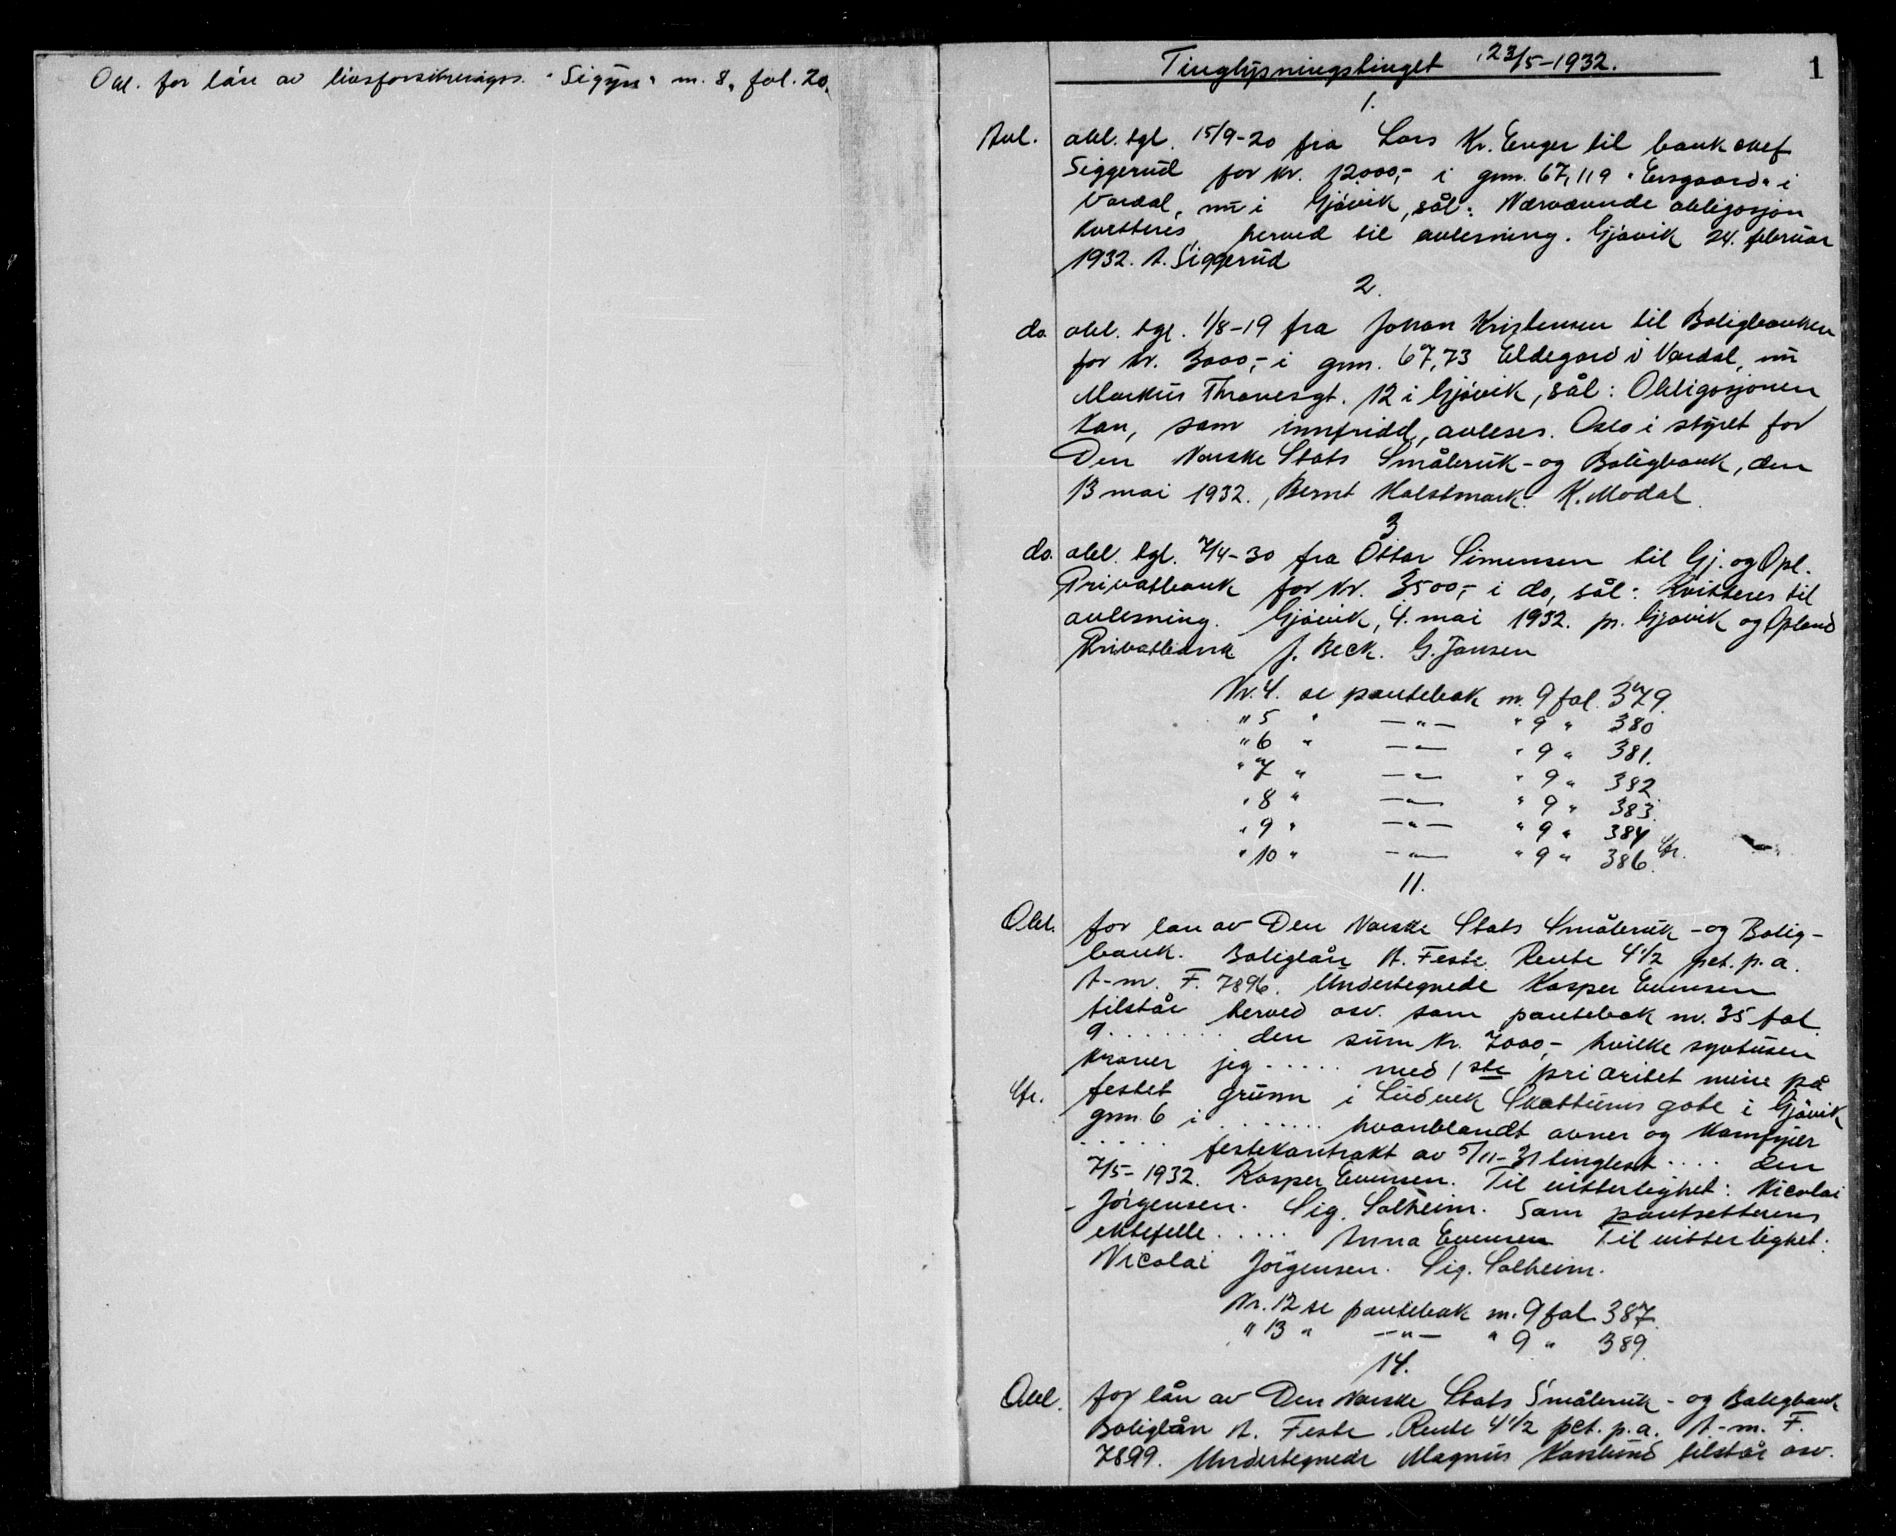 Obl. for lån av livsforsikringss. "Sigyn" nr. 8, fol. 20.
Tinglysningstinget 23/5-1932.
1
1.
Avl. obl. tgl. 15/9-20 fra Lars Kr. Enger til banksjef
Siggerud for kr. 12000,- i gnm. 67,119 "Ensgaard" i
Vardal, nu i Gjøvik, sål: Nærværende obligasjon
kvitteres herved til avlesning. Gjøvik 24. februar
1932. A. Siggerud
2.
do. obl. tgl. 1/8-19 fra Johan Kristensen til Boligbanken
for kr. 3000,- i gnm. 67,73 Eldegard i Vardal, nu
Markus Thranesgt. 12 i Gjøvik, sål: Obligasjonen
kan, som innfridd, avleses. Oslo i styret for
Den Norske Stats Småbruk- og Boligbank, den
13 mai 1932. Bernt Holstmark. K. Modal.
3
do. obl. tgl. 7/4-30 fra Ottar Simensen til Gj. og Opl.
Privatbank for kr. 3500,- i do, sål: Kvitteres til
avlesning. Gjøvik, 4. mai 1932. pr. Gjøvik og Opland
Privatbank J. Beck. G. Jansen
Nr. 4. se pantebok nr. 9 fol. 379.
" 5 " —"— " 9 " 380
" 6 " —"— " 9 " 381.
" 7 " —"— " 9 " 382
" 8 " —"— " 9 " 383.
" 9 " —"— " 9 " 384
" 10 " —"— " 9 " 386.
11.
Obl. for lån av Den Norske Stats Småbruk- og Bolig-
bank. Boliglån A. Feste. Rente 4 1/2 pct. p.a.
A-nr. F. 7896. Undertegnede Kasper Evensen
tilstår herved osv. som pantebok nr. 35 fol.
9 ....... den sum kr. 7000,- hvilke syvtusen
kroner jeg ..... med 1ste prioritet mine på
festet grunn i Ludvik Skattums gate i Gjøvik
gnm. 6 i ....... hvoriblandt ovner og komfyrer
..... festekontrakt av 5/11-31 tinglest .... den
7/5-1932. Kasper Evensen. Til vitterlighet: Nicolai
Jörgensen. Sig. Solheim. Som pantsetterens
ektefelle ..... Anna Evensen Til vitterlighet:
Nicolai Jörgensen. Sig. Solheim.
Nr. 12 se pantebok nr. 9 fol. 387.
" 13 " —"— " 9 " 389.
14.
Obl. for lån av Den Norske Stats Småbruk- og Boligbank
Boliglån A. Feste. Rente 4 1/2 pct. p.a. A-nr. F.
7899. Undertegnede Magnus tilstår osv.